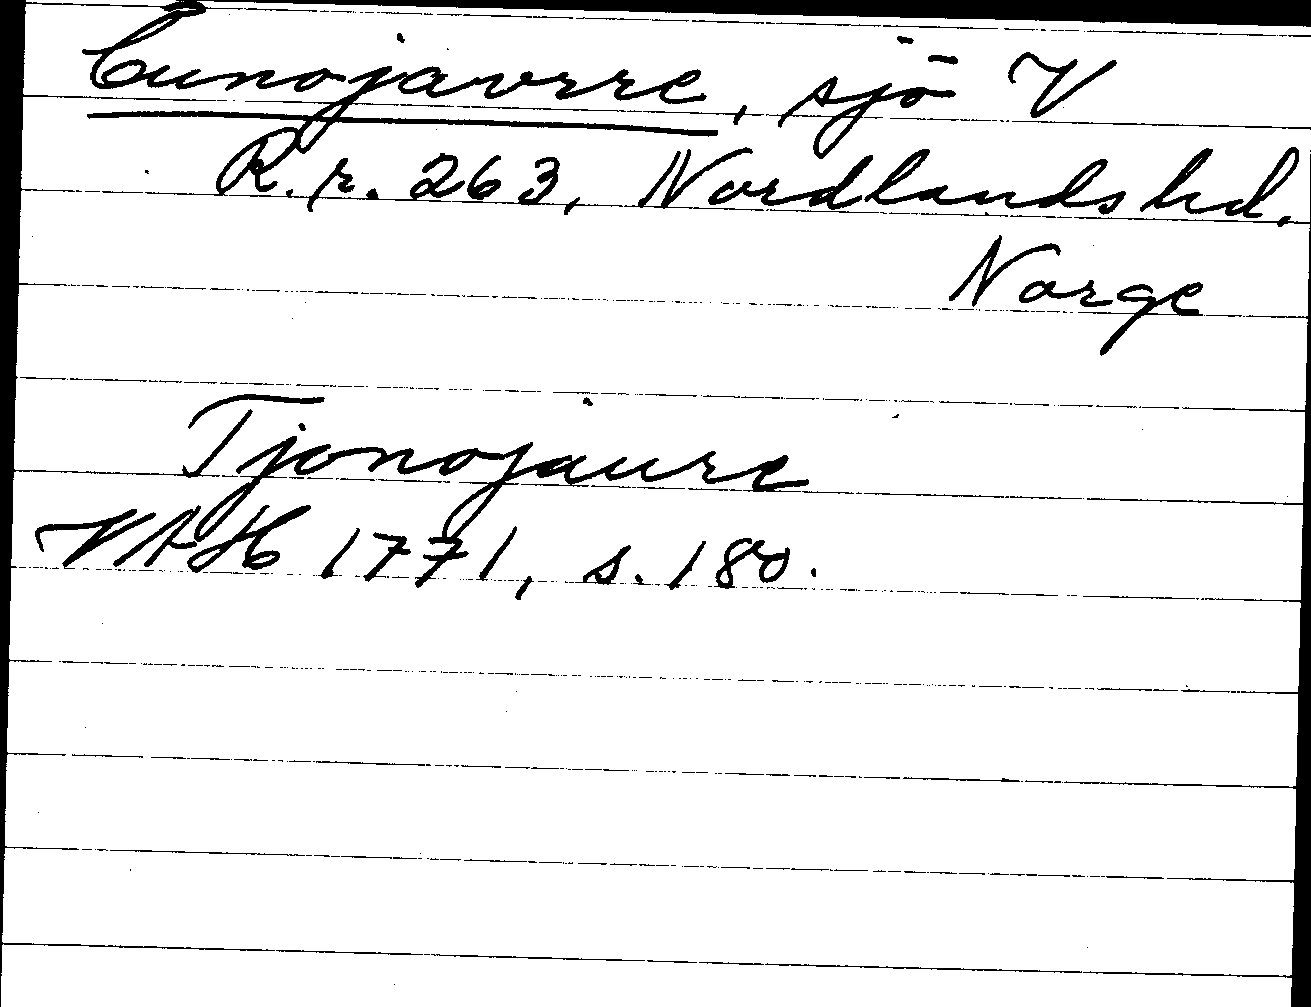 Čunojavrre, sjö V
R.r. 263, Nordlands bd.
Norge
Tjonojaure
VAH 1771, s. 180.